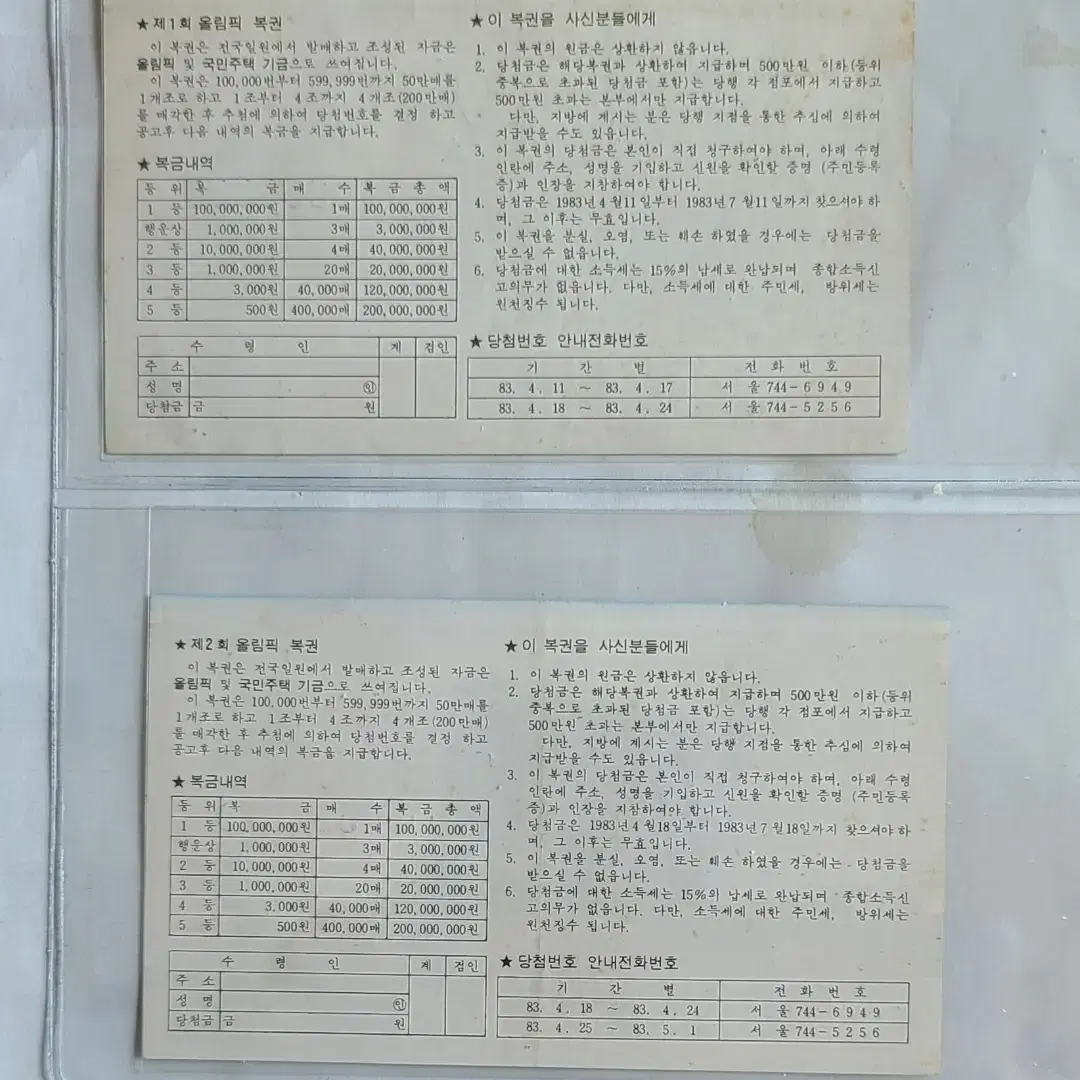 ★ 제1회 올림픽 복권
이 복권은 전국일원에서 발매하고 조성된 자금은
올림픽 및 국민주택 기금으로 쓰여집니다.
이 복권은 100,000번부터 599,999번까지 50만매를
1개조로 하고 1조부터 4조까지 4개조(200만매)
를 매각한 후 추첨에 의하여 당첨번호를 결정 하고
공고후 다음 내역의 복금을 지급합니다.
★ 복금내역
등 위 복 금 매 수 복 금 총 액
1 등 100,000,000원 1매 100,000,000원
행운상 1,000,000원 3매 3,000,000원
2 등 10,000,000원 4매 40,000,000원
3 등 1,000,000원 20매 20,000,000원
4 등 3,000원 40,000매 120,000,000원
5 등 500원 400,000매 200,000,000원
수 령 인 계 검인
주 소
성 명 ㊞
당첨금 금 원
★ 이 복권을 사신분들에게
1. 이 복권의 원금은 상환하지 않읍니다.
2. 당첨금은 해당복권과 상환하여 지급하며 500만원 이하(등위
중복으로 초과된 당첨금 포함)는 당행 각 점포에서 지급하고
500만원 초과는 본부에서만 지급합니다.
다만, 지방에 계시는 분은 당행 지점을 통한 추심에 의하여
지급받을 수도 있읍니다.
3. 이 복권의 당첨금은 본인이 직접 청구하여야 하며, 아래 수령
인란에 주소, 성명을 기입하고 신원을 확인할 증명 (주민등록
증)과 인장을 지참하여야 합니다.
4. 당첨금은 1983년 4월11일부터 1983년 7월11일까지 찾으셔야 하
며, 그 이후는 무효입니다.
5. 이 복권을 분실, 오염, 또는 훼손 하였을 경우에는 당첨금을
받으실 수 없읍니다.
6. 당첨금에 대한 소득세는 15%의 납세로 완납되며 종합소득신
고의무가 없읍니다. 다만, 소득세에 대한 주민세, 방위세는
원천징수 됩니다.
★ 당첨번호 안내전화번호
기 간 별 전 화 번 호
83. 4. 11 ~ 83. 4. 17 서 울 744-6949
83. 4. 18 ~ 83. 4. 24 서 울 744-5256
★ 제2회 올림픽 복권
이 복권은 전국일원에서 발매하고 조성된 자금은
올림픽 및 국민주택 기금으로 쓰여집니다.
이 복권은 100,000번부터 599,999번까지 50만매를
1개조로 하고 1조부터 4조까지 4개조(200만매)
를 매각한 후 추첨에 의하여 당첨번호를 결정 하고
공고후 다음 내역의 복금을 지급합니다.
★ 복금내역
등 위 복 금 매 수 복 금 총 액
1 등 100,000,000원 1매 100,000,000원
행운상 1,000,000원 3매 3,000,000원
2 등 10,000,000원 4매 40,000,000원
3 등 1,000,000원 20매 20,000,000원
4 등 3,000원 40,000매 120,000,000원
5 등 500원 400,000매 200,000,000원
수 령 인 계 검인
주 소
성 명 ㊞
당첨금 금 원
★ 이 복권을 사신분들에게
1. 이 복권의 원금은 상환하지 않읍니다.
2. 당첨금은 해당복권과 상환하여 지급하며 500만원 이하(등위
중복으로 초과된 당첨금 포함)는 당행 각 점포에서 지급하고
500만원 초과는 본부에서만 지급합니다.
다만, 지방에 계시는 분은 당행 지점을 통한 추심에 의하여
지급받을 수도 있읍니다.
3. 이 복권의 당첨금은 본인이 직접 청구하여야 하며, 아래 수령
인란에 주소, 성명을 기입하고 신원을 확인할 증명 (주민등록
증)과 인장을 지참하여야 합니다.
4. 당첨금은 1983년 4월18일부터 1983년 7월18일까지 찾으셔야 하
며, 그 이후는 무효입니다.
5. 이 복권을 분실, 오염, 또는 훼손 하였을 경우에는 당첨금을
받으실 수 없읍니다.
6. 당첨금에 대한 소득세는 15%의 납세로 완납되며 종합소득신
고의무가 없읍니다. 다만, 소득세에 대한 주민세, 방위세는
원천징수 됩니다.
★ 당첨번호 안내전화번호
기 간 별 전 화 번 호
83. 4. 18 ~ 83. 4. 24 서 울 744-6949
83. 4. 25 ~ 83. 5. 1 서 울 744-5256